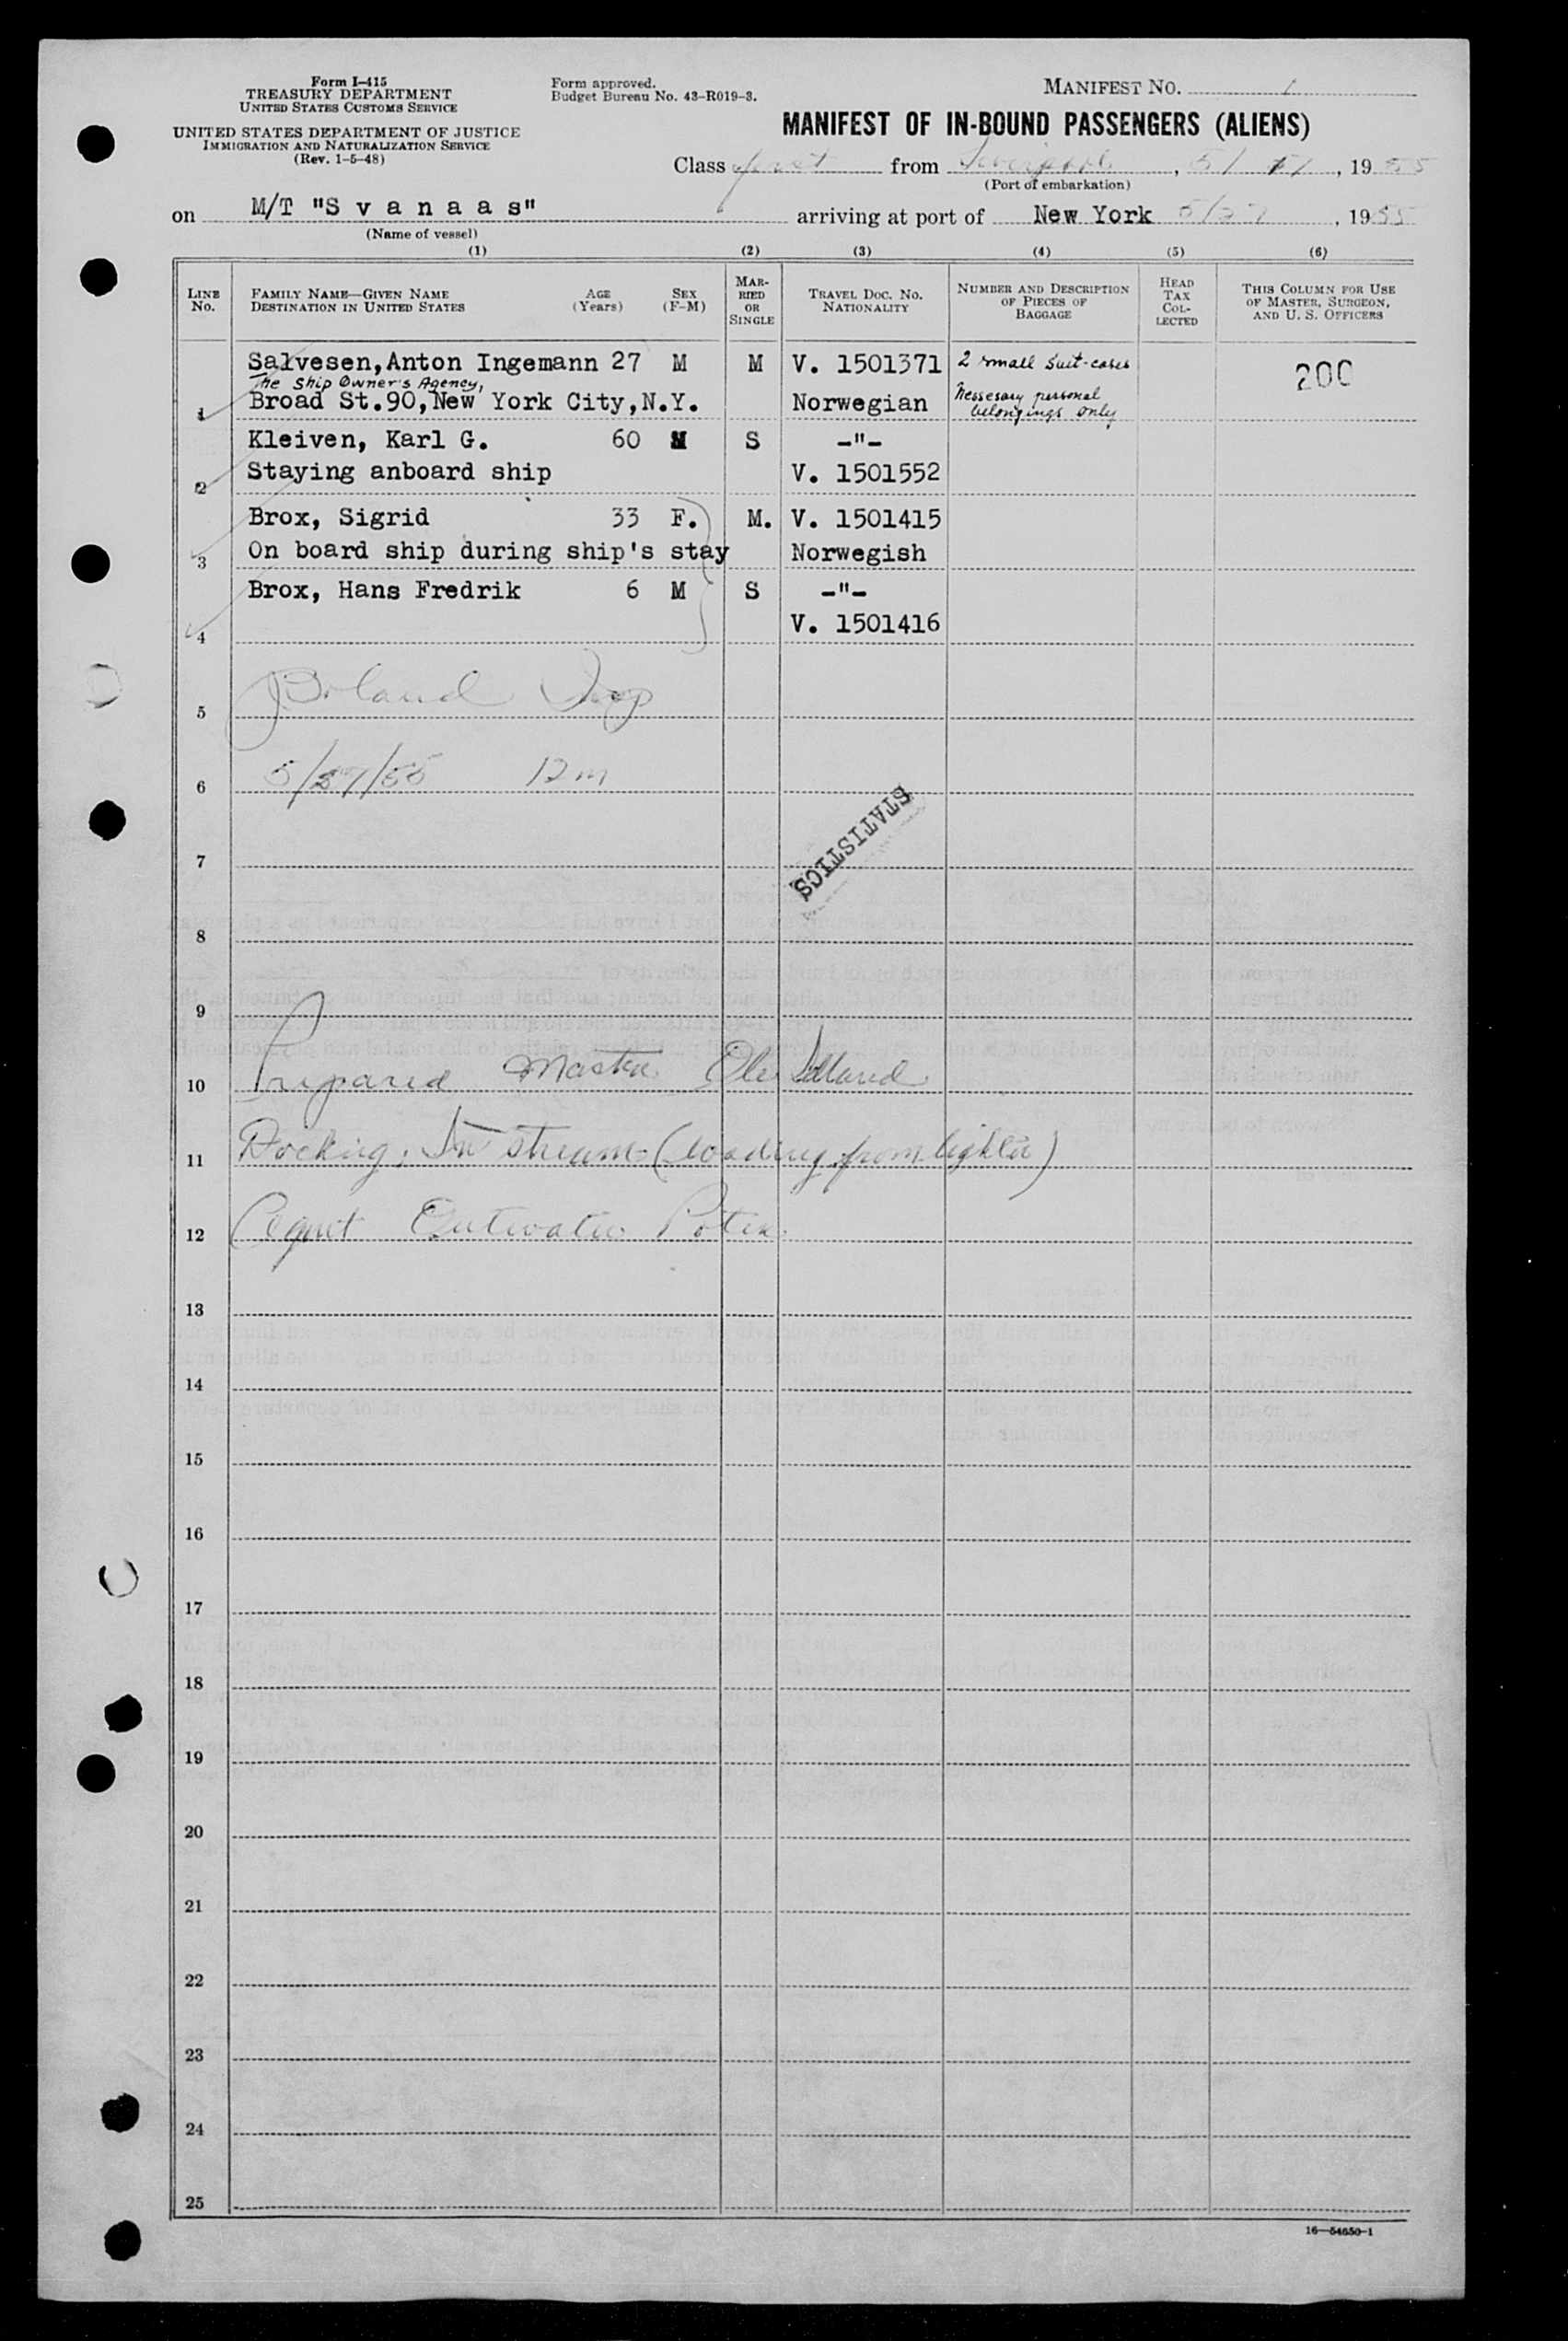 Form I-415
TREASURY DEPARTMENT
UNITED STATES CUSTOMS SERVICE
UNITED STATES DEPARTMENT OF JUSTICE
IMMIGRATION AND NATURALIZATION SERVICE
(Rev. 1-5-48)
Form approved.
Budget Bureau No. 43-R019-3.
MANIFEST NO. 1
MANIFEST OF IN-BOUND PASSENGERS (ALIENS)
Class first from Liverpool, 5/ , 1955
(Port of embarkation)
on M/T "S v a n a a s" arriving at port of New York 5/27, 1955
(Name of vessel)
(1) (2) (3) (4) (5) (6)
LINE NO.
FAMILY NAME—GIVEN NAME
DESTINATION IN UNITED STATES
AGE (Years)
SEX (F-M)
MARRIED OR SINGLE
TRAVEL DOC. NO.
NATIONALITY
NUMBER AND DESCRIPTION OF PIECES OF BAGGAGE
HEAD TAX COLLECTED
THIS COLUMN FOR USE OF MASTER, SURGEON, AND U. S. OFFICERS
Salvesen, Anton Ingemann 27 M M V. 1501371 2 small suit-cases 200
The Ship Owner's Agency,
1 Broad St.90, New York City, N.Y. Norwegian Nessesary personal belongings only
Kleiven, Karl G. 60 M S -"-
2 Staying anboard ship V. 1501552
Brox, Sigrid 33 F. M. V. 1501415
3 On board ship during ship's stay Norwegish
Brox, Hans Fredrik 6 M S -"-
4 V. 1501416
5 Boland Insp
6 5/27/55 12 m
STATISTICS
7
8
9
10 Prepared Master Ole
11 Docking: In stream (loading from lighter)
12 Agent
13
14
15
16
17
18
19
20
21
22
23
24
25
16—54650-1